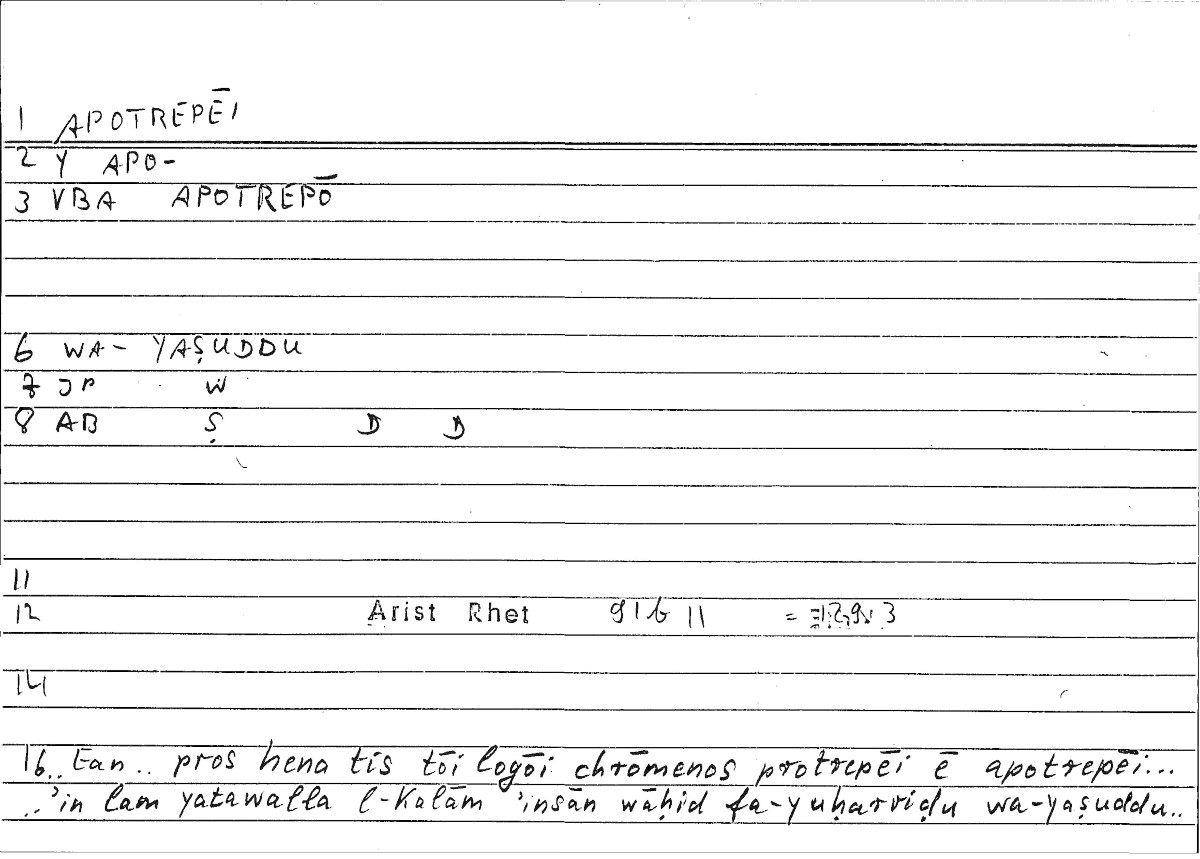 1 APOTREPĒI
2 Y APO-
3 VBA APOTREPŌ
6 WA- YAṢUDDU
7 JP W
8 AB Ṣ D D
11
12 Arist Rhet 91b 11 =
14
16 .. Ean .. pros hena tis tōi logōi chrōmenos protrepēi ē apotrepēi...
..'in lam yatawalla l-Kalām 'insān wāḥid fa-yuḥarriḍu wa-yaṣuddu..